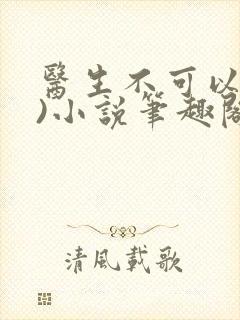 醫生不可以
)小說筆趣閣
清風載歌